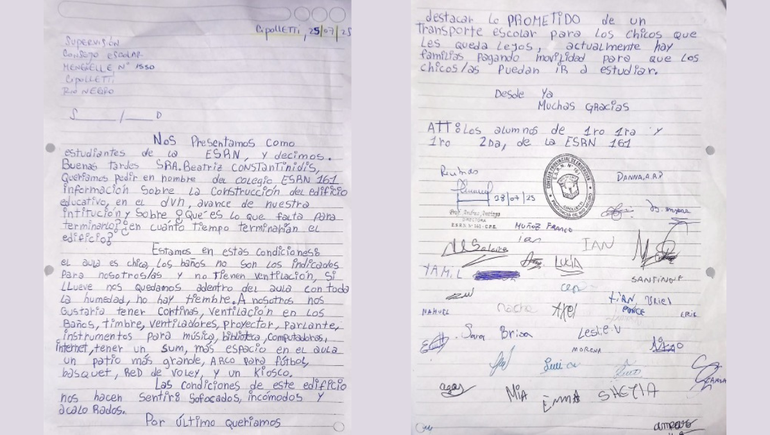 Cipolletti, 25/07/25
SUPERVISIÓN
CONSEJO ESCOLAR
MENGUELLE N° 1550
CIPOLLETTI
RIO NEGRO
S / D
Nos Presentamos como
estudiantes de la ESRN, y decimos.
Buenas tardes SRA. Beatriz CONSTANTINIDIS,
Queríamos pedir en nombre del colegio ESRN 161
información sobre la construcción del edificio
educativo, en el dvn, avance de nuestra
intitución y sobre ¿Qué es lo que falta para
terminarlo? ¿en cuanto tiempo terminarían el
edificio?
Estamos en estas condiciones:
el aula es chica, los baños no son los indicados
para nosotros/as y no tienen ventilación, si
llueve nos quedamos adentro del aula con toda
la humedad, no hay tiembre. A nosotros nos
gustaria tener cortinas, ventilación en los
Baños, timbre, ventiladores, proyector, parlante,
instrumentos para música, biblioteca, computadoras,
Internet, tener un sum, más espacio en el aula
un patio más grande, arco para fútbol,
basquet, Red de voley, y un kiosco.
Las condiciones de este edificio
nos hacen sentir: sofocados, incómodos y
acalorados.
Por último queríamos
destacar lo PROMETIDO de un
transporte escolar para los chicos que
les queda lejos, actualmente hay
familias pagando movilidad para que los
chicos/as puedan ir a estudiar.
Desde ya
Muchas gracias
ATT: Los alumnos de 1ro 1ra y
1ro 2da, de la ESRN 161
28/07/25
DANNA
MUÑOZ FRANCO
IAN
YAMIL
LUCIA
SANTINO
Axel
MANUEL
Sara Brisa
Leslie V
MORENA
MIA EMMA
amparo